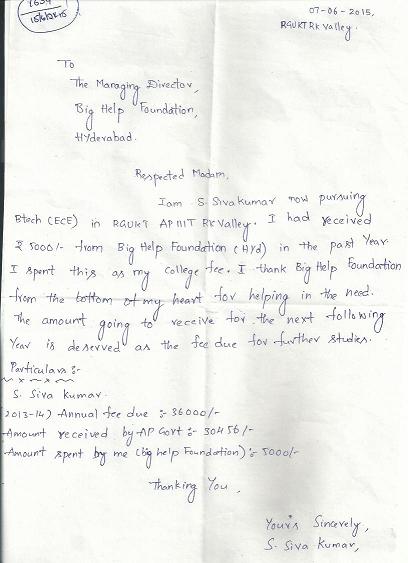 07-06-2015,
RGUKT RK Valley.
To
The Managing Director,
Big Help Foundation,
Hyderabad.
Respected Madam,
Iam S. Siva kumar now pursuing
Btech (ECE) in RGUKT AP IIIT RK Valley. I had received
₹ 5000/- from Big Help Foundation (Hyd) in the past Year
I spent this as my college fee. I thank Big Help Foundation
from the bottom of my heart for helping in the need.
The amount going to receive for the next following
Year is deserved as the fee due for further studies.
Particulars :-
S. Siva kumar.
2013-14) Annual fee due :- 36000/-
Amount received by AP Govt :- 30456/-
Amount spent by me (big help Foundation) :- 5000/-
Thanking You,
Your's Sincerely,
S. Siva Kumar,